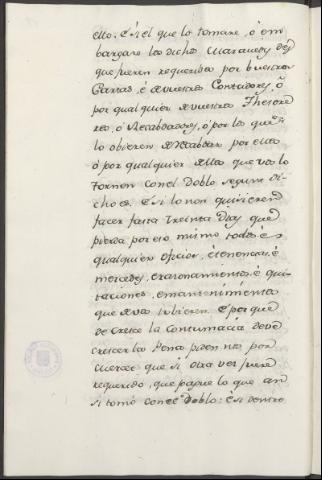 ello. E si el que lo tomare, ó em
bargare los dichos Maravedis des
que fueren requeridos por buestras
Cartas, é de vuestros Contadores, ó
por qualquier de vuestros Thesore
ros, ó Recabdadores, ó por los que
lo obieren de Recabdar por ello
ó por qualquier de ellos que vos lo
tornen con el Doblo segun di
cho es. E si lo non quisieren
facer fasta treinta Dias que
pierda por eso mismo todos é
qualquier oficios, é tenencias é
mercedes, é racionamientos é qui
taciones, é mantenimientos
que de vos tubieren. E por que
do crece la Contumacia debe
crecer la Pena piden nos por
merced que si otra vez fuere
requerido, que pague lo que an
si tomó con el Doblo: E si dentro